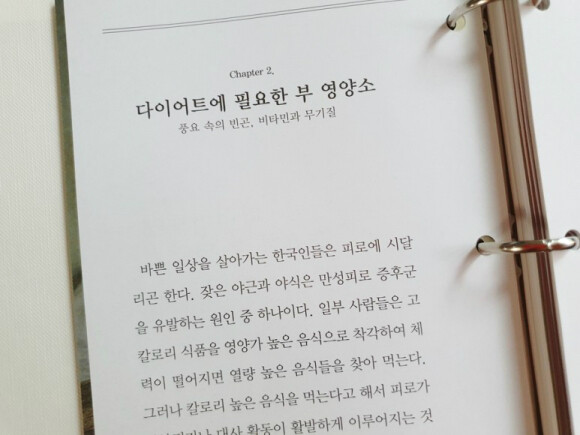 Chapter 2.
다이어트에 필요한 부 영양소
풍요 속의 빈곤, 비타민과 무기질
바쁜 일상을 살아가는 한국인들은 피로에 시달
리곤 한다. 잦은 야근과 야식은 만성피로 증후군
을 유발하는 원인 중 하나이다. 일부 사람들은 고
칼로리 식품을 영양가 높은 음식으로 착각하여 체
력이 떨어지면 열량 높은 음식들을 찾아 먹는다.
그러나 칼로리 높은 음식을 먹는다고 해서 피로가
대사 활동이 활발하게 이루어지는 것